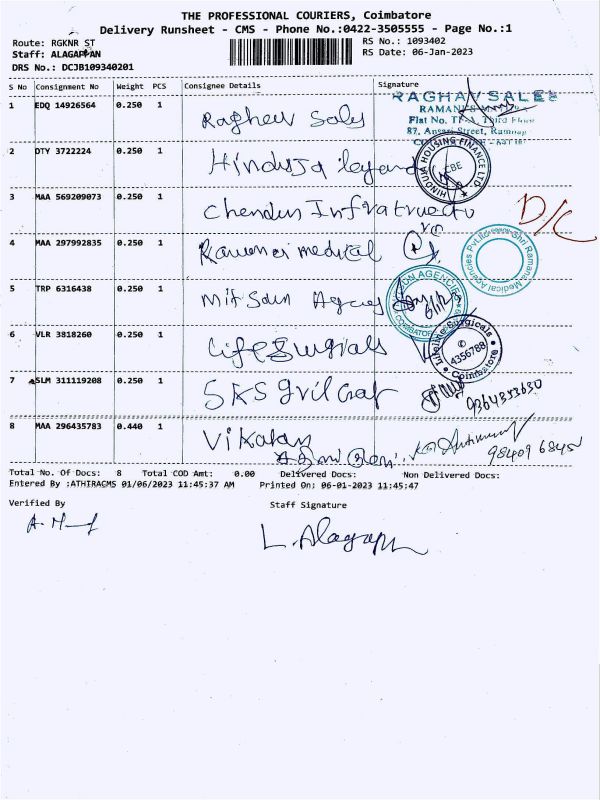 THE PROFESSIONAL COURIERS, Coimbatore
Delivery Runsheet - CMS - Phone No.:0422-3505555 - Page No.:1
Route: RGKNR ST
RS No.: 1093402
Staff: ALAGAPPAN
RS Date: 06-Jan-2023
DRS No.: DCJB109340201
S No Consignment No Weight PCS Consignee Details Signature
1 EDQ 14926564 0.250 1 Raghav Sales
RAGHAV SALES
Flat No.
Third Floor
87, Ansari Street, Ramnag
2 DTY 3722224 0.250 1 Hinduja
HINDUJA HOUSING FINANCE LTD
CBE
3 MAA 569209073 0.250 1
D/C
4 MAA 297992835 0.250 1 medical
Shri Ramana Medical Agencies Pvt.Ltd
5 TRP 6316438 0.250 1
AGENCIES
COIMBATORE
6 VLR 3818260 0.250 1
Lifeline Surgicals
4356788
Coimbatore
7 SLM 311119208 0.250 1 SKS
9364353630
8 MAA 296435783 0.440 1 Vikatan
98409 6845
Total No. Of Docs: 8 Total COD Amt: 0.00 Delivered Docs: Non Delivered Docs:
Entered By :ATHIRACMS 01/06/2023 11:45:37 AM Printed On: 06-01-2023 11:45:47
Verified By
Staff Signature
L. Alagappn